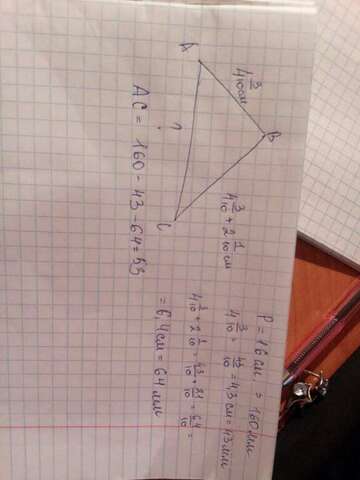 A
4 3/10 см
B
4 3/10 + 2 1/10 см
?
C
P = 16 см = 160 мм
4 3/10 = 43/10 = 4,3 см = 43 мм
4 3/10 + 2 1/10 = 43/10 + 21/10 = 64/10 =
= 6,4 см = 64 мм
AC = 160 - 43 - 64 = 53